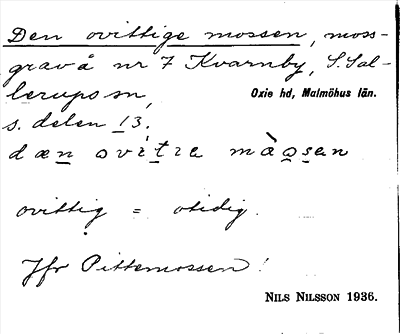 Den ovittige mossen, moss-
gravå nr 7 Kvarnby, S. Sal-
lerups sn, Oxie hd, Malmöhus län.
s. delen 13.
dæn ovitre màosen
ovittig = otidig.
Jfr Pittemossen!
NILS NILSSON 1936.